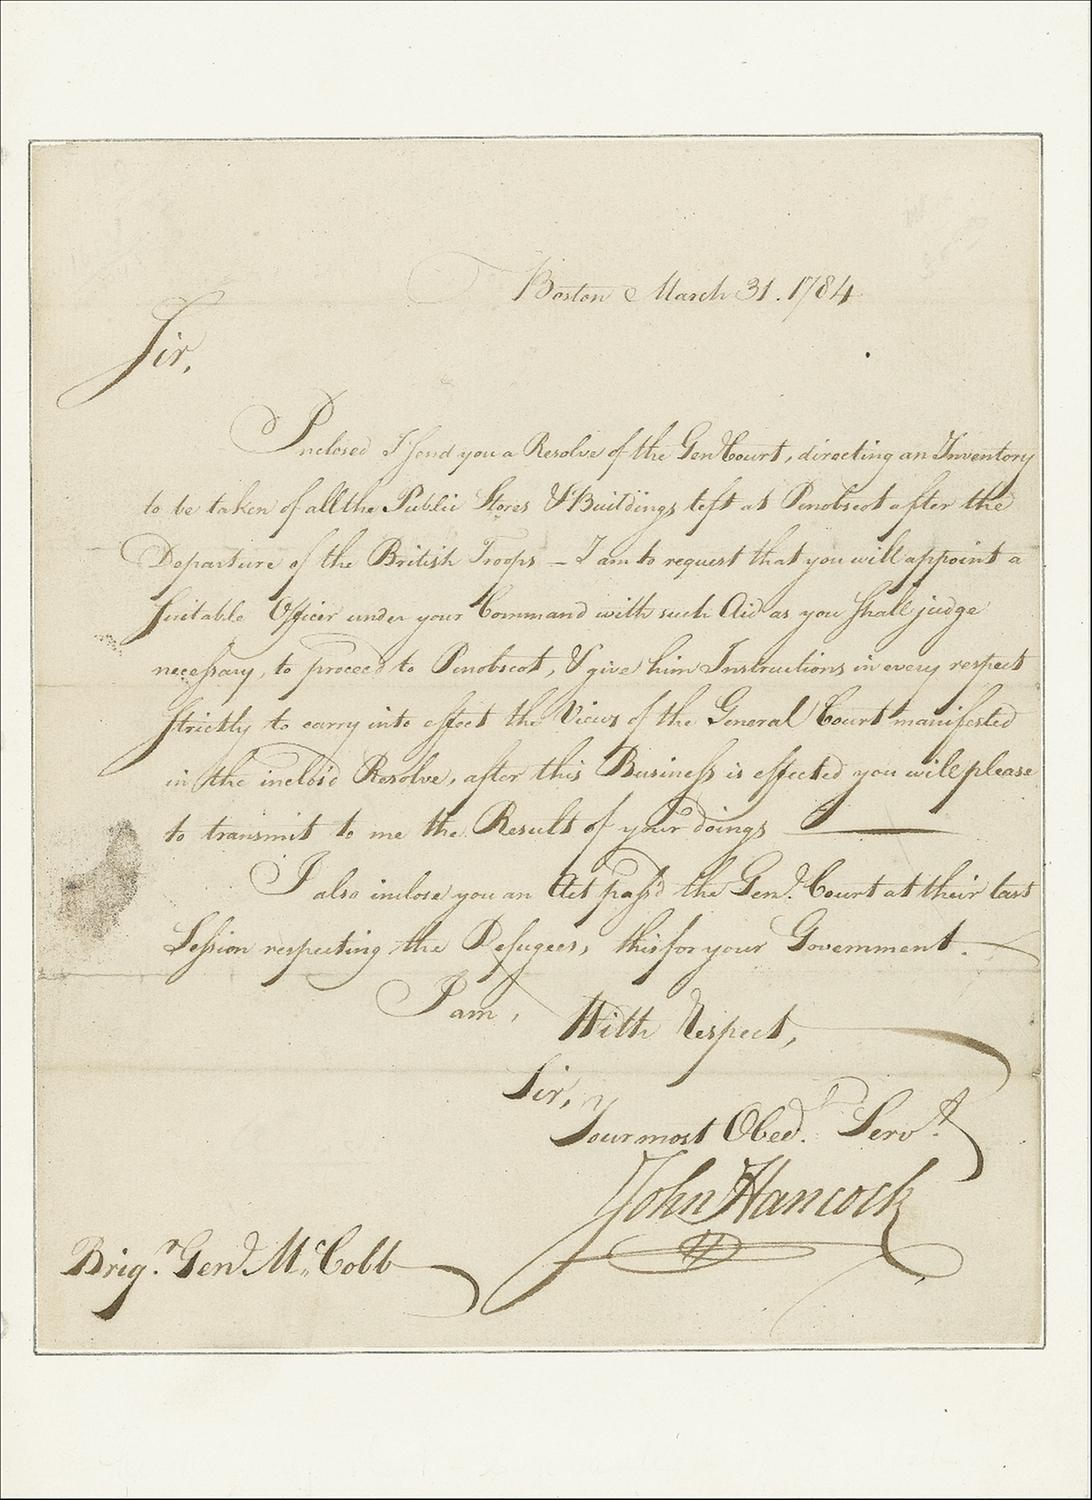 Boston March 31. 1784
Sir,
Inclosed I send you a Resolve of the Gen Court, directing an Inventory
to be taken of all the Public Stores & Buildings left at Penobscot after the
Departure of the British Troops – I am to request that you will appoint a
suitable Officer under your Command with such Aid as you shall judge
necessary, to proceed to Penobscot, & give him Instructions in every respect
strictly to carry into effect the Views of the General Court manifested
in the inclos'd Resolve, after this Business is effected you will please
to transmit to me the Result of your doings —
I also inclose you an Act pass'd the Genl. Court at their last
Session respecting the Refugees, this for your Government.
I am,
With Respect,
Sir,
Your most Obedt. Servt.
John Hancock
Brigr. Genl McCobb